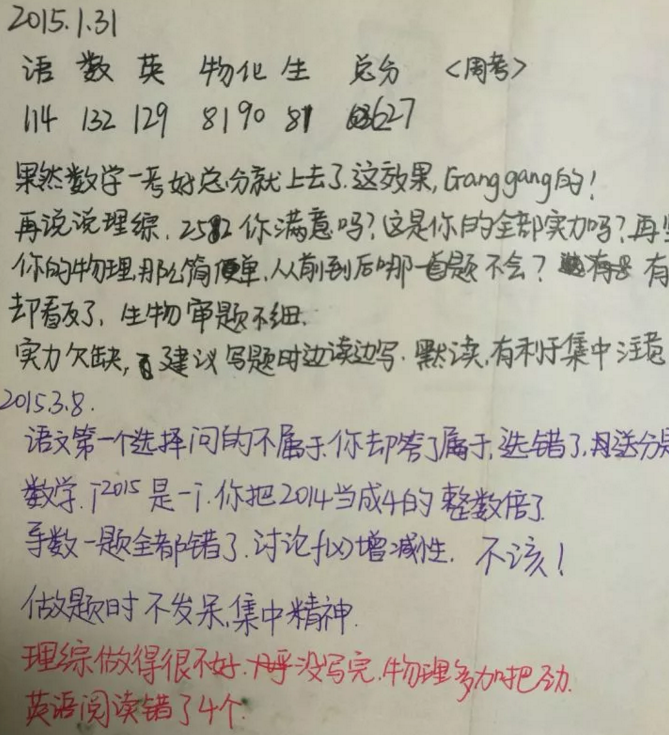 2015.1.31
语 数 英 物 化 生 总分 <周考>
114 132 129 81 90 81 627
果然数学一考好总分就上去了.这效果,Gang gang的!
再说说理综.252 你满意吗?这是你的全部实力吗?再
你的物理,那么简单,从前到后哪一道题不会? 有
却看反了,生物审题不细.
实力欠缺, 建议写题时边读边写.默读,有利于集中注意
2015.3.8.
语文第一个选择问的不属于.你却答了属于,选错了, 送分
数学.i²⁰¹⁵ 是-i.你把2014当成4的整数倍了
导数一题全都错了.讨论f(x)增减性. 不该!
做题时不发呆,集中精神.
理综做得很不好. 没写完.物理多加把劲.
英语阅读错了4个.